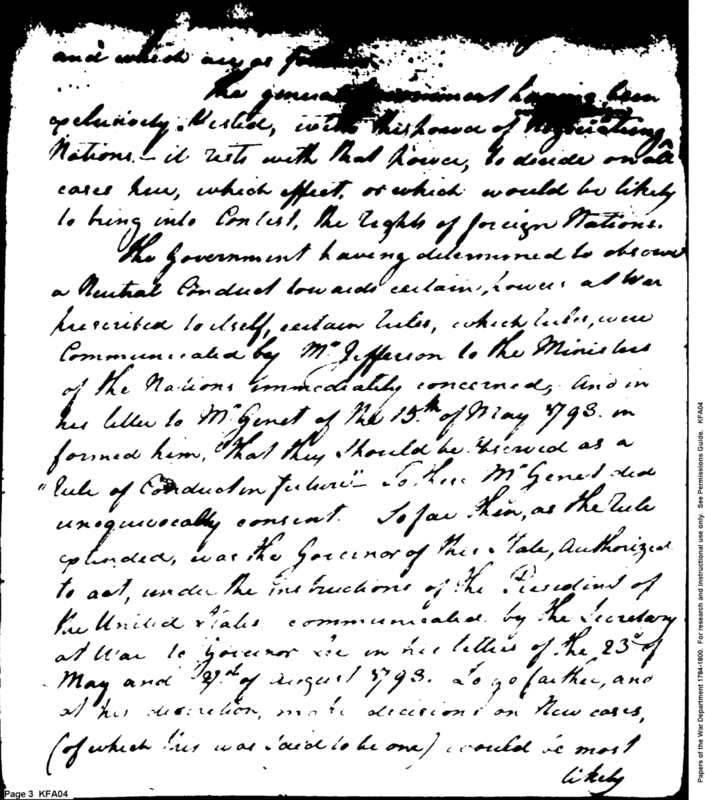 and which are as
The general Government having been
exclusively Vested, with this power of Negociating
Nations - it rests with that power, to decide on all
cases here, which effect, or which would be likely
to bring into Contest, the rights of foreign Nations.
The Government having determined to observe
a Neutral Conduct towards certain powers at War
prescribed to itself, certain rules, which rules, were
Communicated by Mr Jefferson to the Ministers
of the Nations immediately concerned, and in
his letter to Mr Genet of the 15th of May 1793. in
formed him, "that they should be observed as a
"rule of Conduct in future" - To these Mr Genet did
unequivocally consent. So far then, as the rule
extended, was the Governor of this State, Authorized
to act, under the instructions of the President of
the United States communicated by the Secretary
at War to Governor Lee in his letters of the 23d of
May and of August 1793. To go farther, and
at his discretion, make decisions on New cases,
(of which this was said to be one) would be most
likely
Page 3 KFA04
Papers of the War Department 1784-1800. For research and instructional use only. See Permissions Guide. KFA04